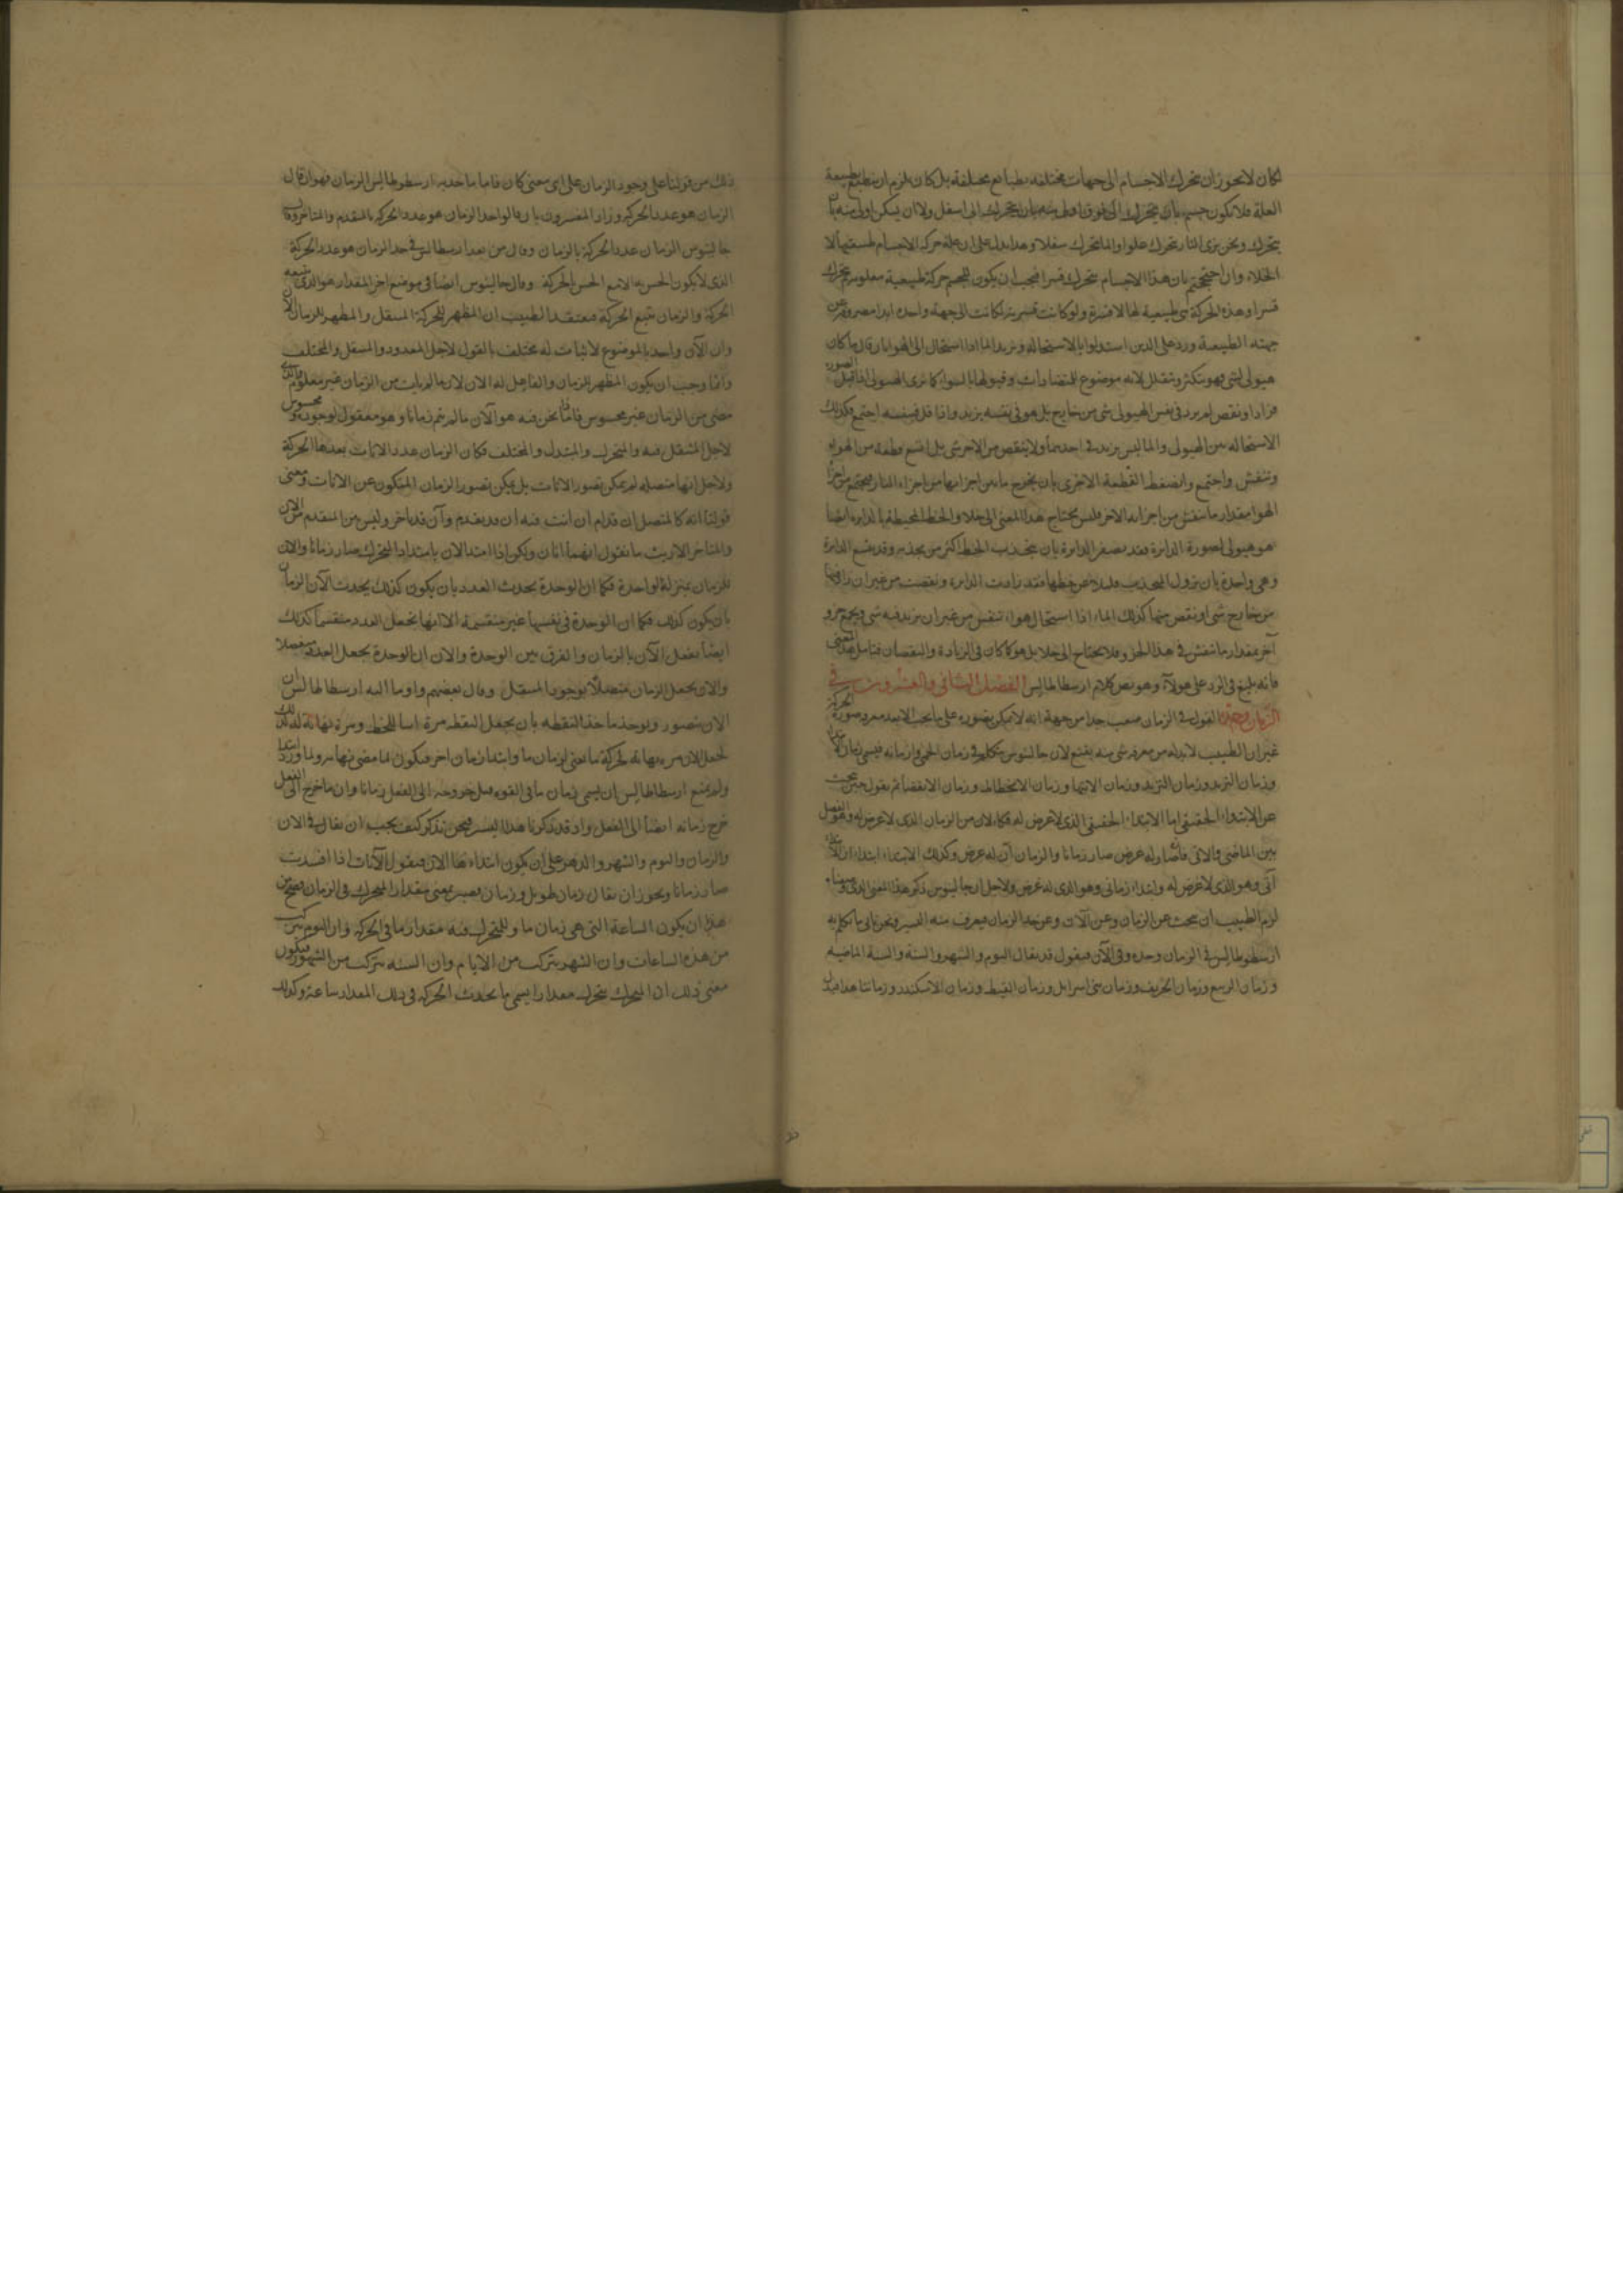 لكان لا يجوز ان تتحرك الاجسام الى جهات مختلفة بطبائع مختلفة بل كان يلزم ان تطيع طبيعة
العلة فلا يكون جسم بأن يتحرك الى فوق اولى منه بان يتحرك الى اسفل ولا ان يسكن اولى منه بأن
يتحرك ونحن نرى النار تتحرك علوا والماء يتحرك سفلا وهذا يدل على ان علة حركة الاجسام طبيعتها لا
الخلاء وان احتججتم بان هذا الاجسام تتحرك قسرا فيجب ان يكون للجسم حركة طبيعية معلومة ثم يتحرك
قسرا وهذه الحركة هى طبيعية لها لا قسرية ولو كانت قسرية لكانت الى جهة واحدة ابدا مصروفة عن
جهته الطبيعية ورد على الذين استدلوا بالاستحالة وتزيد الماء اذا استحال الى الهواء بان قال ما كان
هيولى لشى فهو يتكثر ويتقلل لانه موضوع للمتضادات وقبولها بالسواء كما نرى الهيولى اذا قبل الصورة
فزاد او نقص لم يزد فى نفس الهيولى شى من خارج بل هو فى نفسه يزيد واذا قل فبنفسه اجتمع فكذلك
الاستحالة من الهيولى والماء ليس يزيد فى احدهما ولا ينقص من الاخر شى بل اتسع قطعة من الهواء
وتنفش واجتمع وانضغط القطعة الاخرى بان يخرج ما بين اجزائها من اجزاء النار فيجتمع من اجزاء
الهوا مقدار ما تنفش من اجزائه الاخر فليس يحتاج هذا المعنى الى خلاء والخط المحيطة بالدايرة ايضا
هو هيولى لصورة الدايرة فقد يصغر الدايرة بان يتحدب الخط اكثر من تحدبه وقد يتسع الدايرة
وهى واحدة بان يزول التحديب فلا خص خطها فقد زادت الدايرة ونقصت من غير ان زاد فيها
من خارج شى او نقص منها كذلك الماء اذا استحال هواء تنفش من غير ان يزيد فيه شى ويجمع جزو
آخر بمقدار ما تنفش فى هذا الجزو فلا يحتاج الى خلا بل هو كما كان فى الزيادة والنقصان فتأمل هذا المعنى
فانه بليغ فى الرد على هولآء وهو نص كلام ارسطاطاليس الفصل الثانى والعشرون فى
الزمان وحده القول فى الزمان صعب جدا من جهة انه لا يمكن تصوره على ما يجب الا بعد معرفة صورة الحركة
غير ان الطبيب لا بد له من معرفة شى منه يقنع لان جالينوس يتكلم فى زمان الحمى وازمانه فيسمى زمان الابتداء
وزمان التزيد وزمان التزيد وزمان الانتها وزمان الانحطاط وزمان الانقضاء ثم يقول حين يبحث
عن الابتداء الحقيقى اما الابتداء الحقيقى الذى لا عرض له فكالان من الزمان الذى لا عرض له وهو الفصل
بين الماضى والاتى فاذا صار له عرض صار زمانا والزمان آن له عرض وكذلك الابتداء ابتداءان ابتداء
آنى وهو الذى لا عرض له وابتداء زمانى وهو الذى له عرض ولاجل ان جالينوس ذكر هذا المعنى الذى وصفناه
لزم الطبيب ان يبحث عن الزمان وعن الآن وعن حد الزمان فيعرف منه اليسير ونحن نأتى ما تكلم به
ارسطوطاليس فى الزمان وحده وفى الآن فيقول قد يقال اليوم والشهر والسنة والسنة الماضية
وزمان الربيع وزمان الخريف وزمان بنى اسرائيل وزمان القبط وزمان الاسكندر وزماننا هذا فيدل
ذلك من قولنا على وجود الزمان على اى معنى كان فاما ما حد به ارسطوطاليس الزمان فهو ان قال
الزمان هو عدد الحركة وزاد المفسرون بان قالوا حد الزمان هو عدد الحركة بالمتقدم والمتاخر وقال
جالينوس الزمان عدد الحركة بالزمان وقال من بعد ارسطاطاليس فى حد الزمان هو عدد الحركة
الذى لا يكون الحس به الا مع الحس بالحركة وقال جالينوس ايضا فى موضع اخر المقدار هو الذى يتبعه
الحركة والزمان يتبع الحركة فيعتقد الطبيب ان المظهر للحركة المنتقل والمظهر للزمان الآن
وان الآن واحد بالموضوع لا ثبات له مختلف بالقول لاجل المعدود والمنتقل والمختلف
وانما وجب ان يكون المظهر للزمان والفاعل له الان لان ما لم يات من الزمان غير معلوم والذى
مضى من الزمان غير محسوس فاما نحن فيه هو الآن ما لم يتم زمانا وهو معقول لوجوده ومحسوس
لاجل المنتقل فيه والمتحرك والمتبدل والمختلف فكان الزمان عدد الانات بعدها الحركة
ولاجل انها متصلة لم يمكن تصور الانات بل يمكن تصور الزمان المتكون عن الانات ومعنى
قولنا انه كالمتصل ان قدام آن انت فيه آن قد تقدم وآن قد تاخر وليس من المتقدم من الان
والمتاخر الاريث ما نقول انهما انان ولكن اذا امتد الان بامتداد المتحرك صار زمانا والان
للزمان بمنزلة الواحدة فكما ان الوحدة يحدث العدد بان يكون كذلك يحدث الآن الزمان
بان يكون كذلك فكما ان الوحدة فى نفسها غير منقسمة الا انها تجعل العدد منقسما كذلك
ايضا يفعل الآن بالزمان والفرق بين الوحدة والان ان الوحدة يجعل العدد منفصلا
والان يجعل الزمان متصلا بوجود المنتقل وقال بعضهم واوما اليه ارسطاطاليس ان
الان يتصور ويوخذ ماخذ النقطة بان يجعل النقطة مرة اساً للخط ومرة نهاية له كذلك
يجعل الان مرة نهاية لحركة ما يعنى لزمان ما وابتدا زمان اخر فيكون لما مضى نهاية ولما ورد ابتدا
ولم يمنع ارسطاطاليس ان يسمى زمان ما فى القوة قبل خروجه الى الفعل زمانا وان ما خرج الى الفعل
خرج زمانه ايضا الى الفعل واذ قد ذكرنا هذا اليسير فنحن نذكر كيف يجب ان يقال فى الان
والزمان واليوم والشهر والدهر على ان يكون ابتداءها الان فيقول الآنات اذا امتدت
صار زمانا ويجوز ان يقال زمان طويل وزمان قصير بمعنى مقدار المتحرك فى الزمان فيصح من
هذا ان يكون الساعة التى هى زمان ما وللمتحرك فيه مقدار ما فى الحركة وان اليوم يتركب
من هذه الساعات وان الشهر يتركب من الايام وان السنة يتركب من الشهور فيكون
معنى ذلك ان المتحرك يتحرك مقدارا يسمى ما يحدث الحركة فى ذلك المقدار ساعة وكذلك